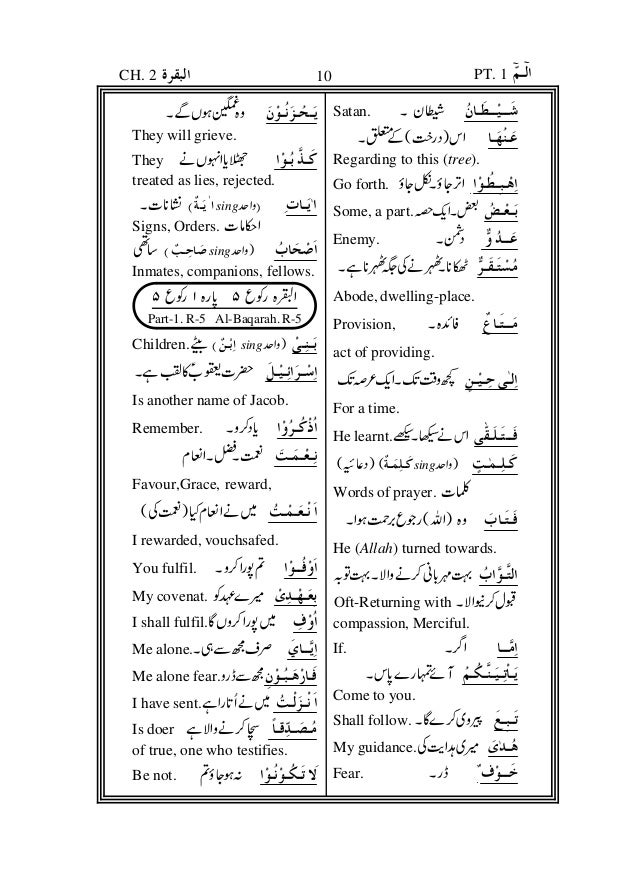 CH. 2 البقرة 10 PT. 1 الٓمّٓ
شَيْطَانُ شیطان ۔ Satan.
عَنْهَا اس (درخت) کے متعلق۔
Regarding to this (tree).
اِهْبِطُوْا اتر جاؤ۔ نکل جاؤ Go forth.
بَعْضُ بعض۔ ایک حصہ Some, a part.
عَدُوٌّ دشمن۔ Enemy.
مُسْتَقَرٌّ ٹھکانا۔ ٹھہرنے کی جگہ ٹھہرنا ہے۔
Abode, dwelling-place.
مَتَاعٌ فائدہ۔ Provision,
act of providing.
اِلٰى حِيْنٍ کچھ وقت تک۔ ایک عرصہ تک
For a time.
فَتَلَقّٰى اس نے سیکھا۔ سیکھے۔ He learnt.
كَلِمٰتٍ (واحد sing كَلِمَةٌ) (دعائیہ)
کلمات Words of prayer.
فَتَابَ وہ (اللہ) رجوع برحمت ہوا۔
He (Allah) turned towards.
التَّوَّابُ بہت مہربانی کرنے والا۔ بہت توبہ
قبول کرنیوالا۔ Oft-Returning with
compassion, Merciful.
اِمَّا اگر۔ If.
يَأْتِيَنَّكُمْ آئے تمہارے پاس۔
Come to you.
تَبِعَ پیروی کرے گا۔ Shall follow.
هُدَايَ میری ہدایت کی My guidance.
خَوْفٌ ڈر۔ Fear.
يَحْزَنُوْنَ وہ غمگین ہوں گے۔
They will grieve.
كَذَّبُوْا جھٹلایا انہوں نے They
treated as lies, rejected.
اٰيَاتِ (واحد sing اٰيَةٌ) نشانات۔
احکامات Signs, Orders.
اَصْحَابُ (واحد sing صَاحِبٌ) ساتھی
Inmates, companions, fellows.
البقرہ رکوع ۵ پارہ ۱ رکوع ۵
Part-1. R-5 Al-Baqarah. R-5
بَنِيْ (واحد sing اِبْنٌ) بیٹے Children.
اِسْرَائِيْلَ حضرت یعقوبؑ کا لقب ہے۔
Is another name of Jacob.
اُذْكُرُوْا یاد کرو۔ Remember.
نِعْمَتَ نعمت۔ فضل۔ انعام
Favour,Grace, reward,
اَنْعَمْتُ میں نے انعام کیا (نعمت کی)
I rewarded, vouchsafed.
اَوْفُوْا تم پورا کرو۔ You fulfil.
بِعَهْدِيْ میرے عہد کو My covenat.
اُوْفِ میں پورا کروں گا I shall fulfil.
اِيَّايَ صرف مجھ سے ہی۔ Me alone.
فَارْهَبُوْنِ مجھ سے ڈرو۔ Me alone fear.
اَنْزَلْتُ میں نے اُتارا ہے I have sent.
مُصَدِّقاً سچا کرنے والا ہے Is doer
of true, one who testifies.
لَا تَكُوْنُوْا نہ ہو جاؤ تم Be not.